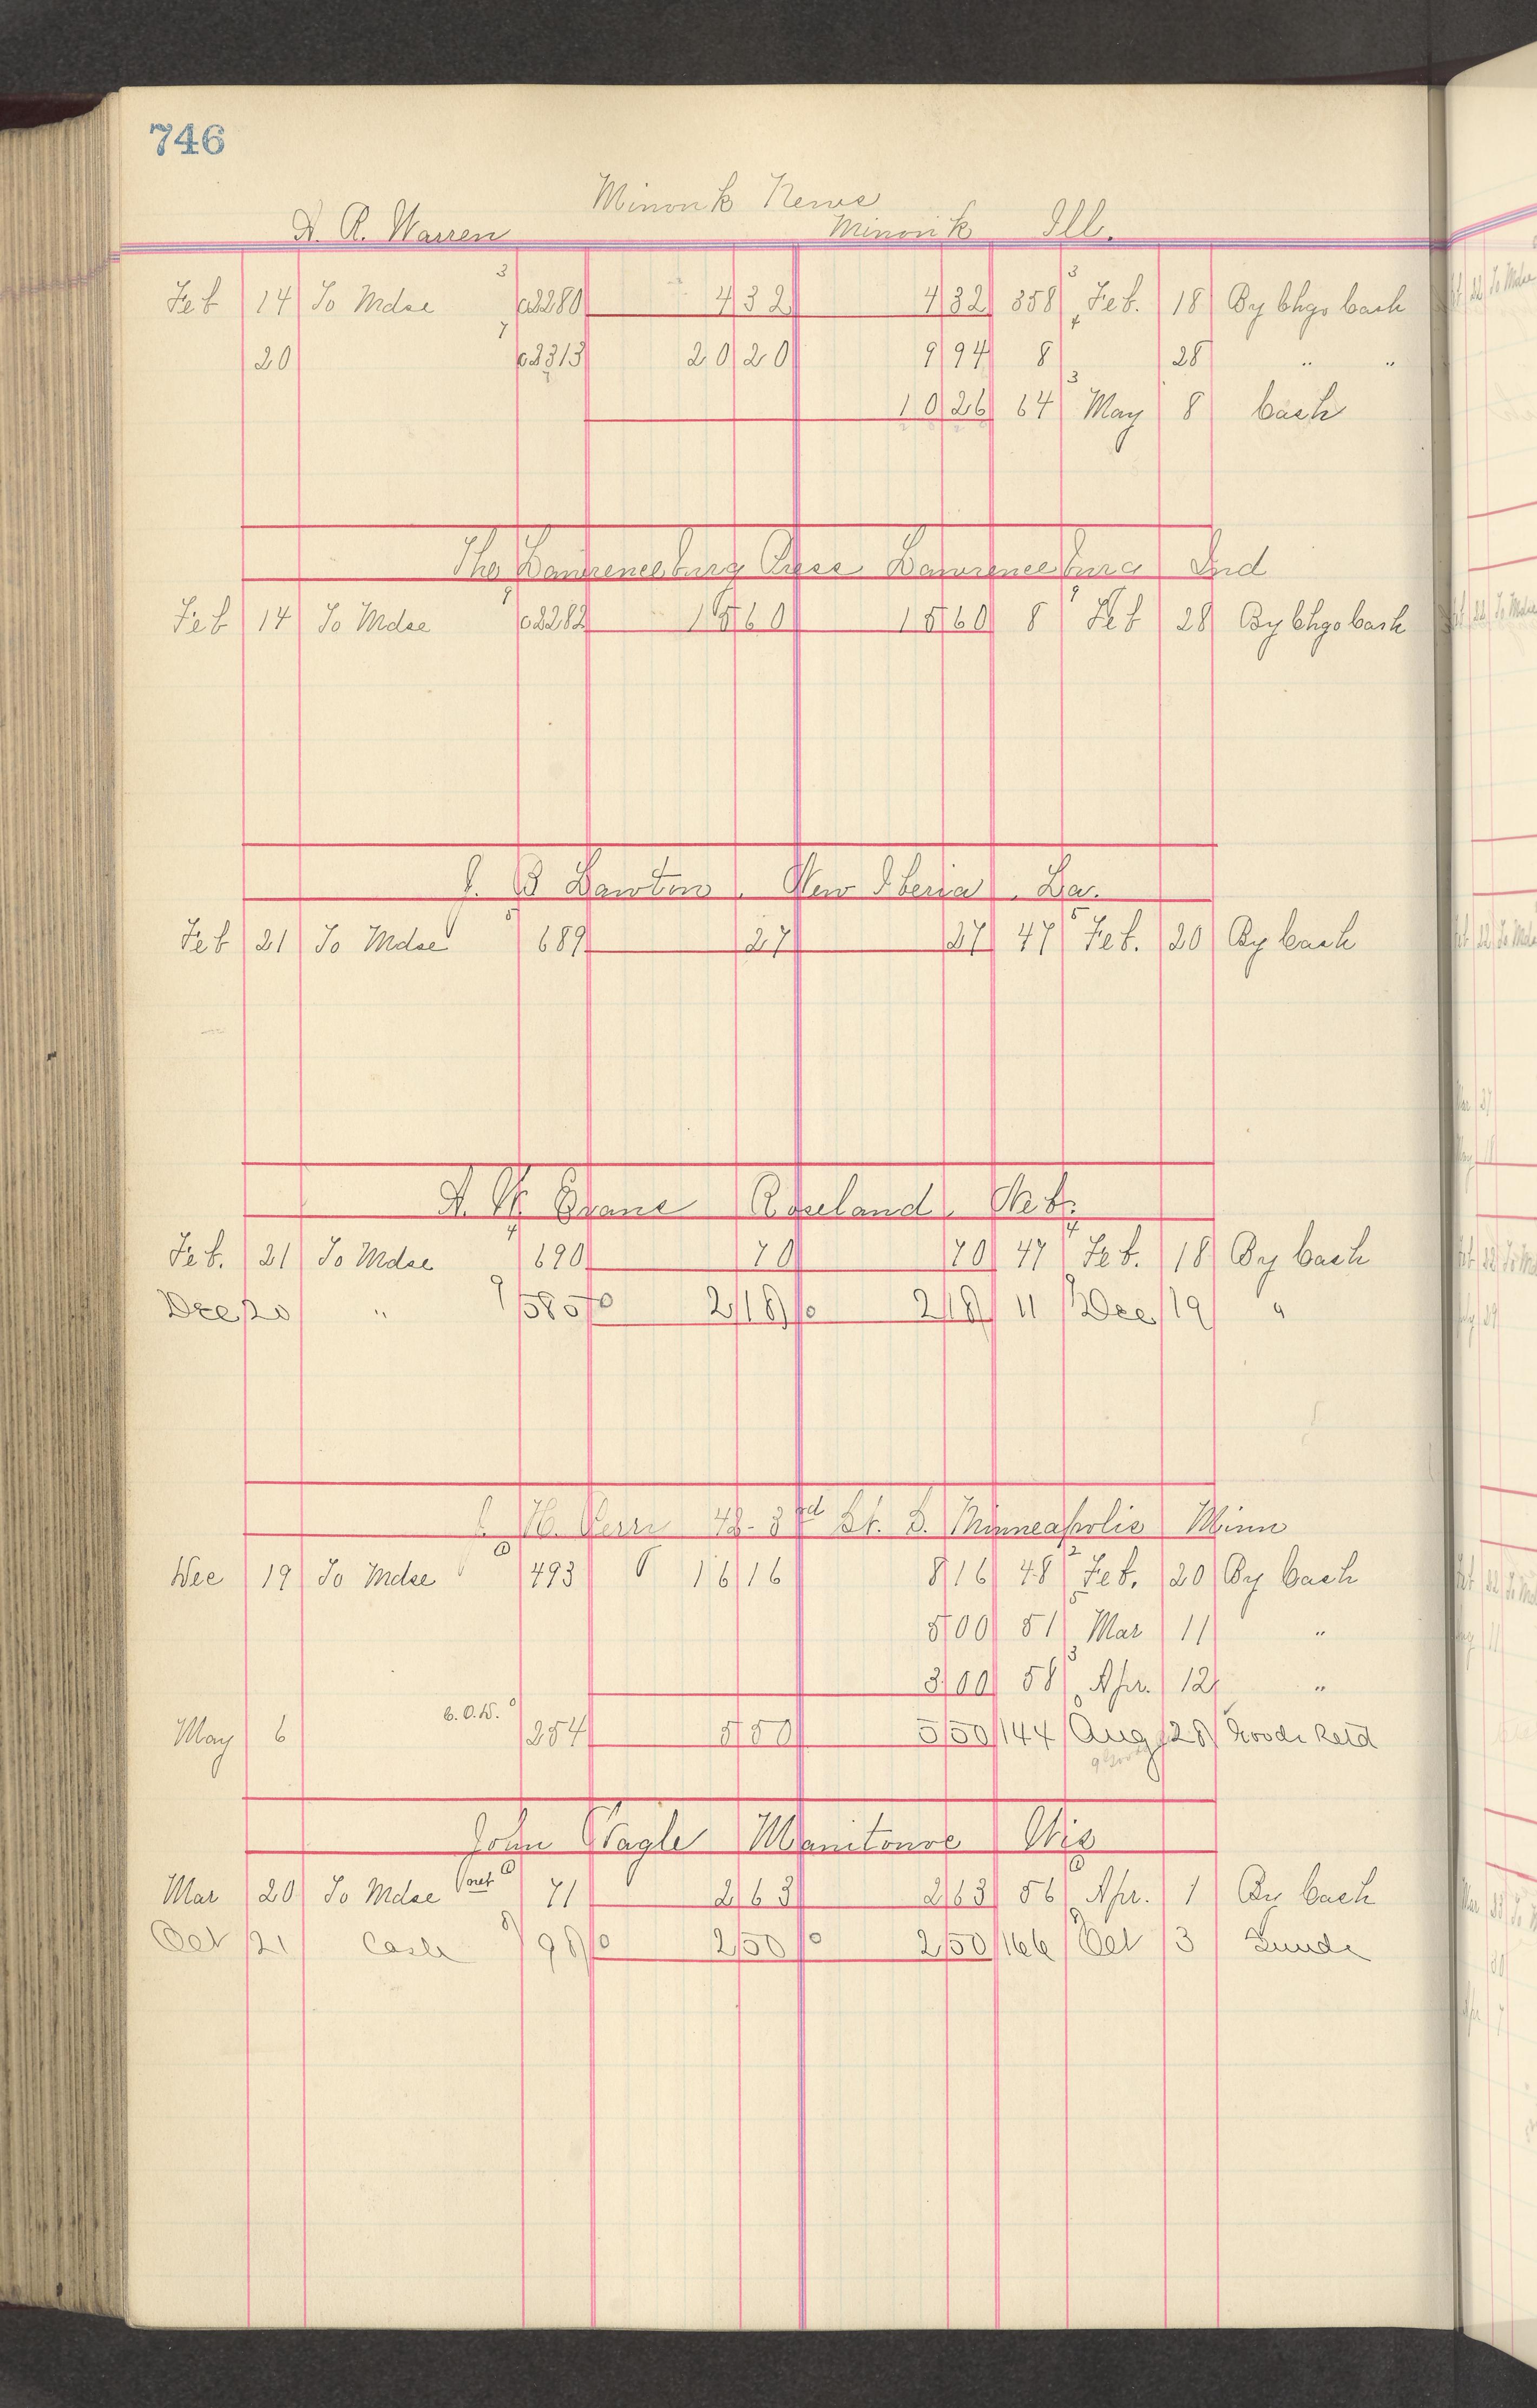 746
Minonk News
A. R. Warren Minonk Ill.
Feb 14 To Mdse 3 c2280 4 32 4 32 358 3 Feb. 18 By Chgo Cash
20 7 c2313 20 20 9 94 8 4 28 " "
10 26 64 3 May 8 Cash
The Lawrenceburg Press Lawrenceburg Ind
Feb 14 To Mdse c2282 15 60 15 60 8 Feb 28 By Chgo Cash
B Lawton New Iberia La.
Feb 21 To Mdse 5 689 27 27 47 5 Feb. 20 By Cash
Evans Roseland Neb.
Feb. 21 To Mdse 4 690 70 70 47 4 Feb. 18 By Cash
Dec 20 " 9 585 2 18 2 18 11 Dec 19 "
H. 48-3rd St. S. Minneapolis Minn
Dec 19 To Mdse 493 16 16 8 16 48 2 Feb. 20 By Cash
5 00 51 5 Mar 11 "
3 00 58 3 Apr. 12 "
May 6 254 5 50 5 50 144 Aug 28 Goods Retd
John Nagle Manitowoc Wis
Mar 20 To Mdse 71 2 63 2 63 56 Apr. 1 By Cash
Oct 21 Cash 98 2 50 2 50 166 Oct 3 Sunds